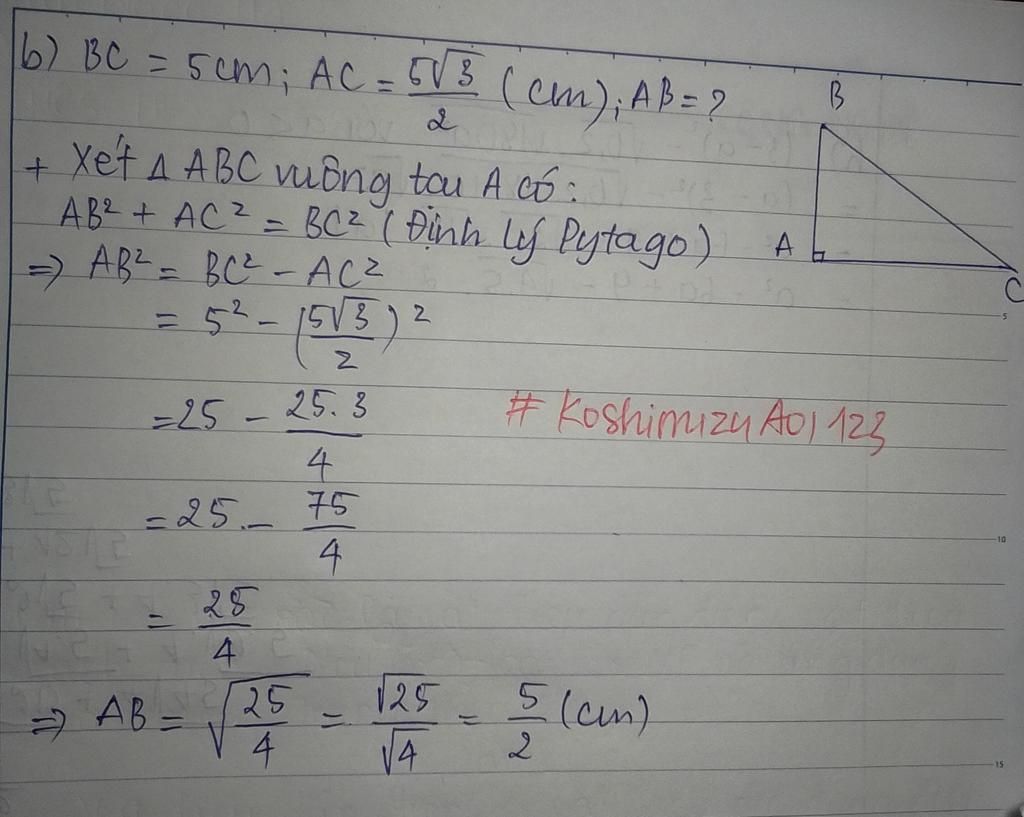 b) BC = 5cm; AC = 5√3/2 (cm); AB = ?
B
+ Xét Δ ABC vuông tại A có:
AB² + AC² = BC² (Định lý Pytago)
A
⇒ AB² = BC² - AC²
C
= 5² - (5√3/2)²
5
= 25 - 25.3/4
# KoshimizuAoi123
= 25 - 75/4
10
= 25/4
⇒ AB = √(25/4) = √25/√4 = 5/2 (cm)
15